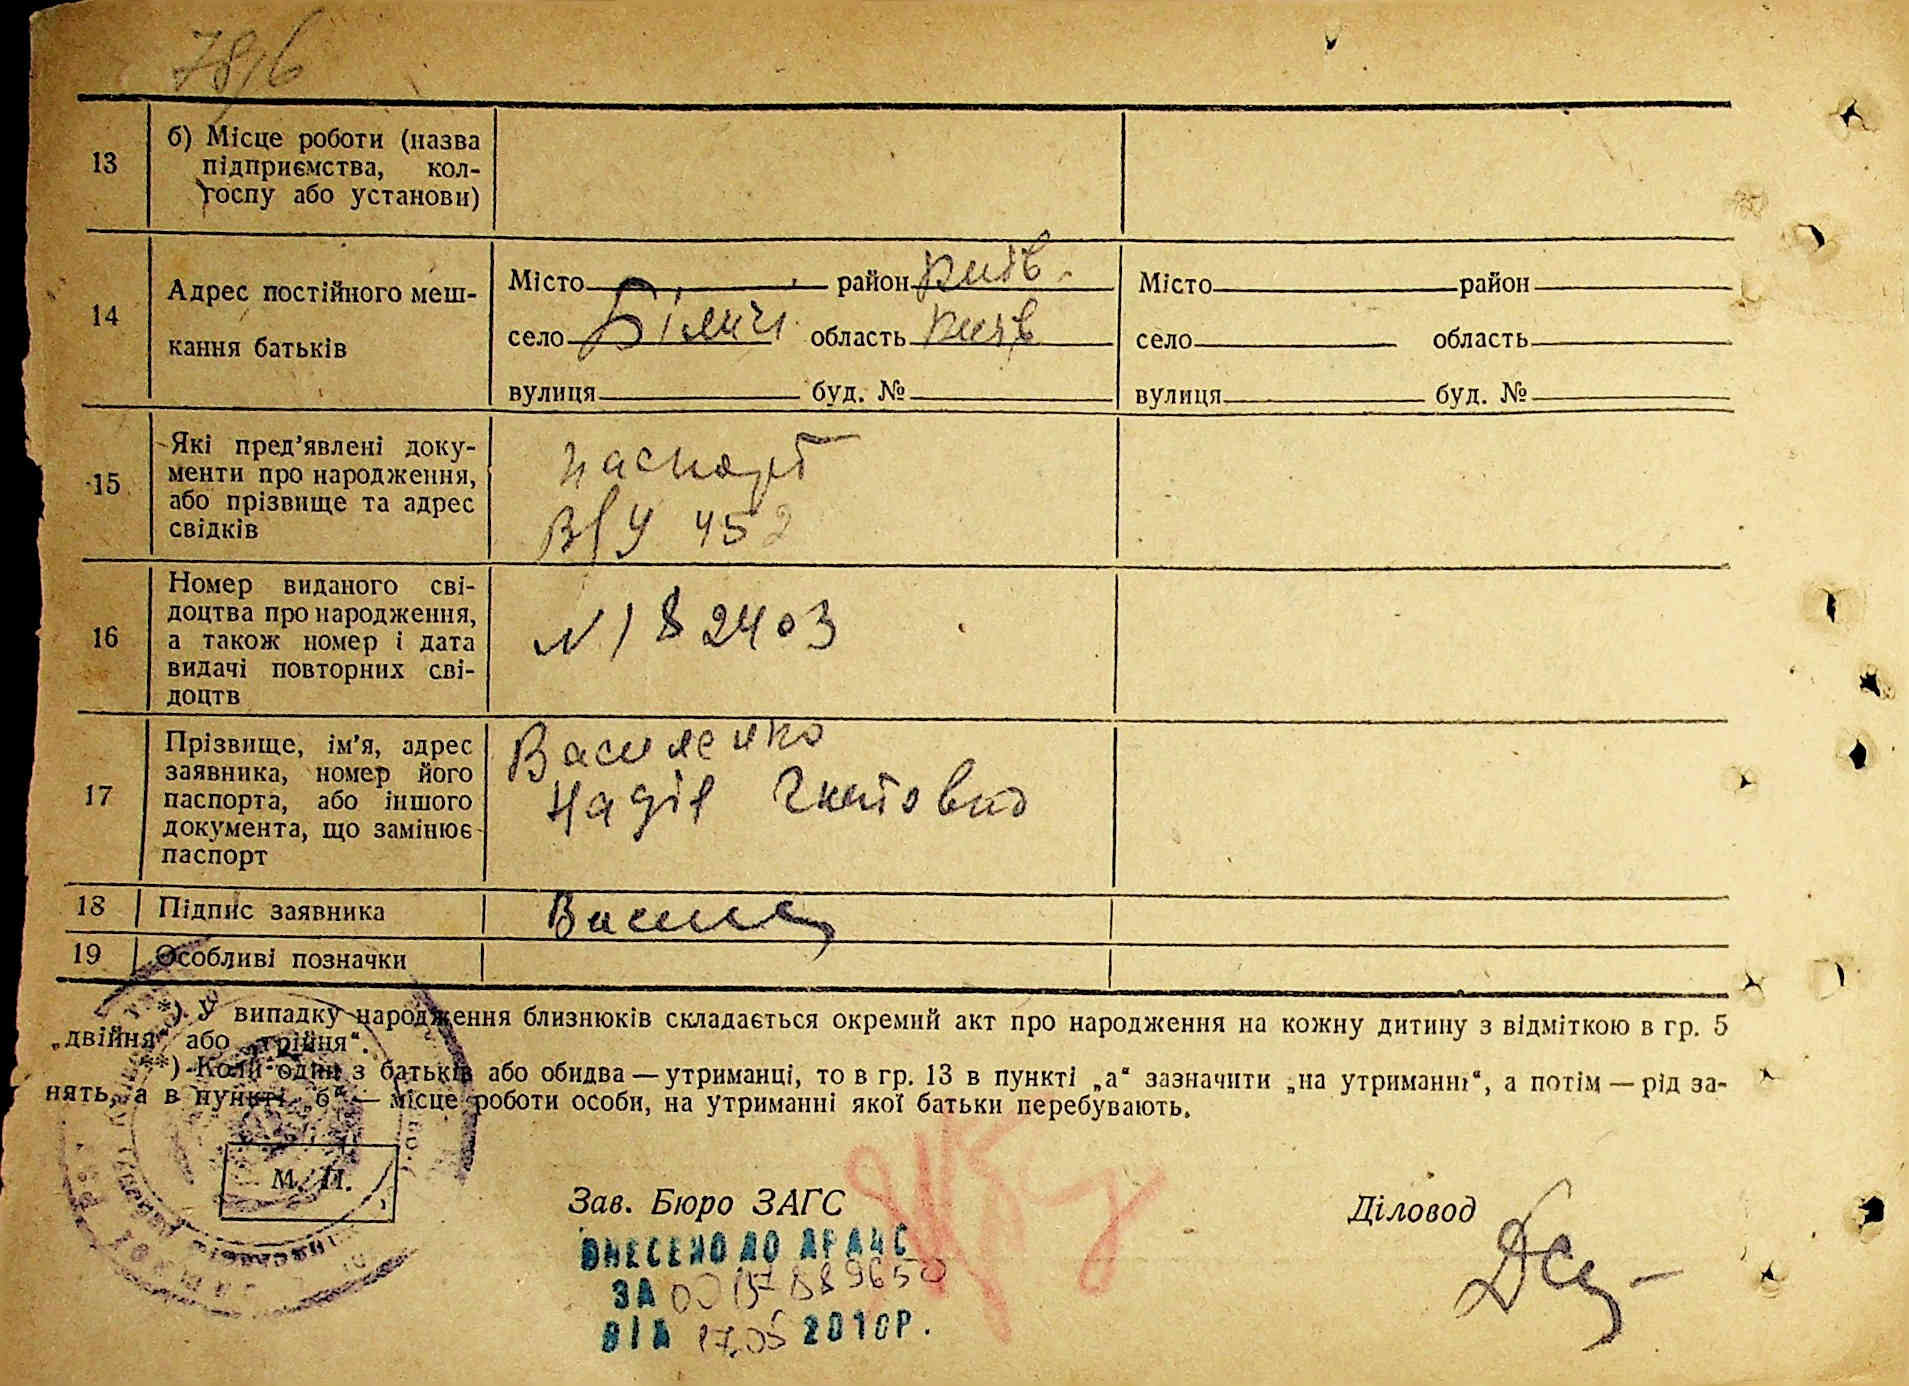 78/6
13
б) Місце роботи (назва
підприємства, кол-
госпу або установи)
14
Адрес постійного меш-
кання батьків
Місто район Київ.
село Біличі область Київ
вулиця буд. №
Місто район
село область
вулиця буд. №
15
Які пред'явлені доку-
менти про народження,
або прізвище та адрес
свідків
паспорт
452
16
Номер виданого сві-
доцтва про народження,
а також номер і дата
видачі повторних сві-
доцтв
N 182403
17
Прізвище, ім'я, адрес
заявника, номер його
паспорта, або іншого
документа, що замінює
паспорт
Василенко
Надія
18
Підпис заявника
19
Особливі позначки
*) У випадку народження близнюків складається окремий акт про народження на кожну дитину з відміткою в гр. 5
„двійня“ або „трійня“.
**) Коли один з батьків або обидва — утриманці, то в гр. 13 в пункті „а“ зазначити „на утриманні“, а потім — рід за-
нять, а в пункті „б“ — місце роботи особи, на утриманні якої батьки перебувають.
М. П.
Зав. Бюро ЗАГС
Діловод
ВНЕСЕНО ДО ДРАЦС
ЗА
ВІД 17.05 2010Р.